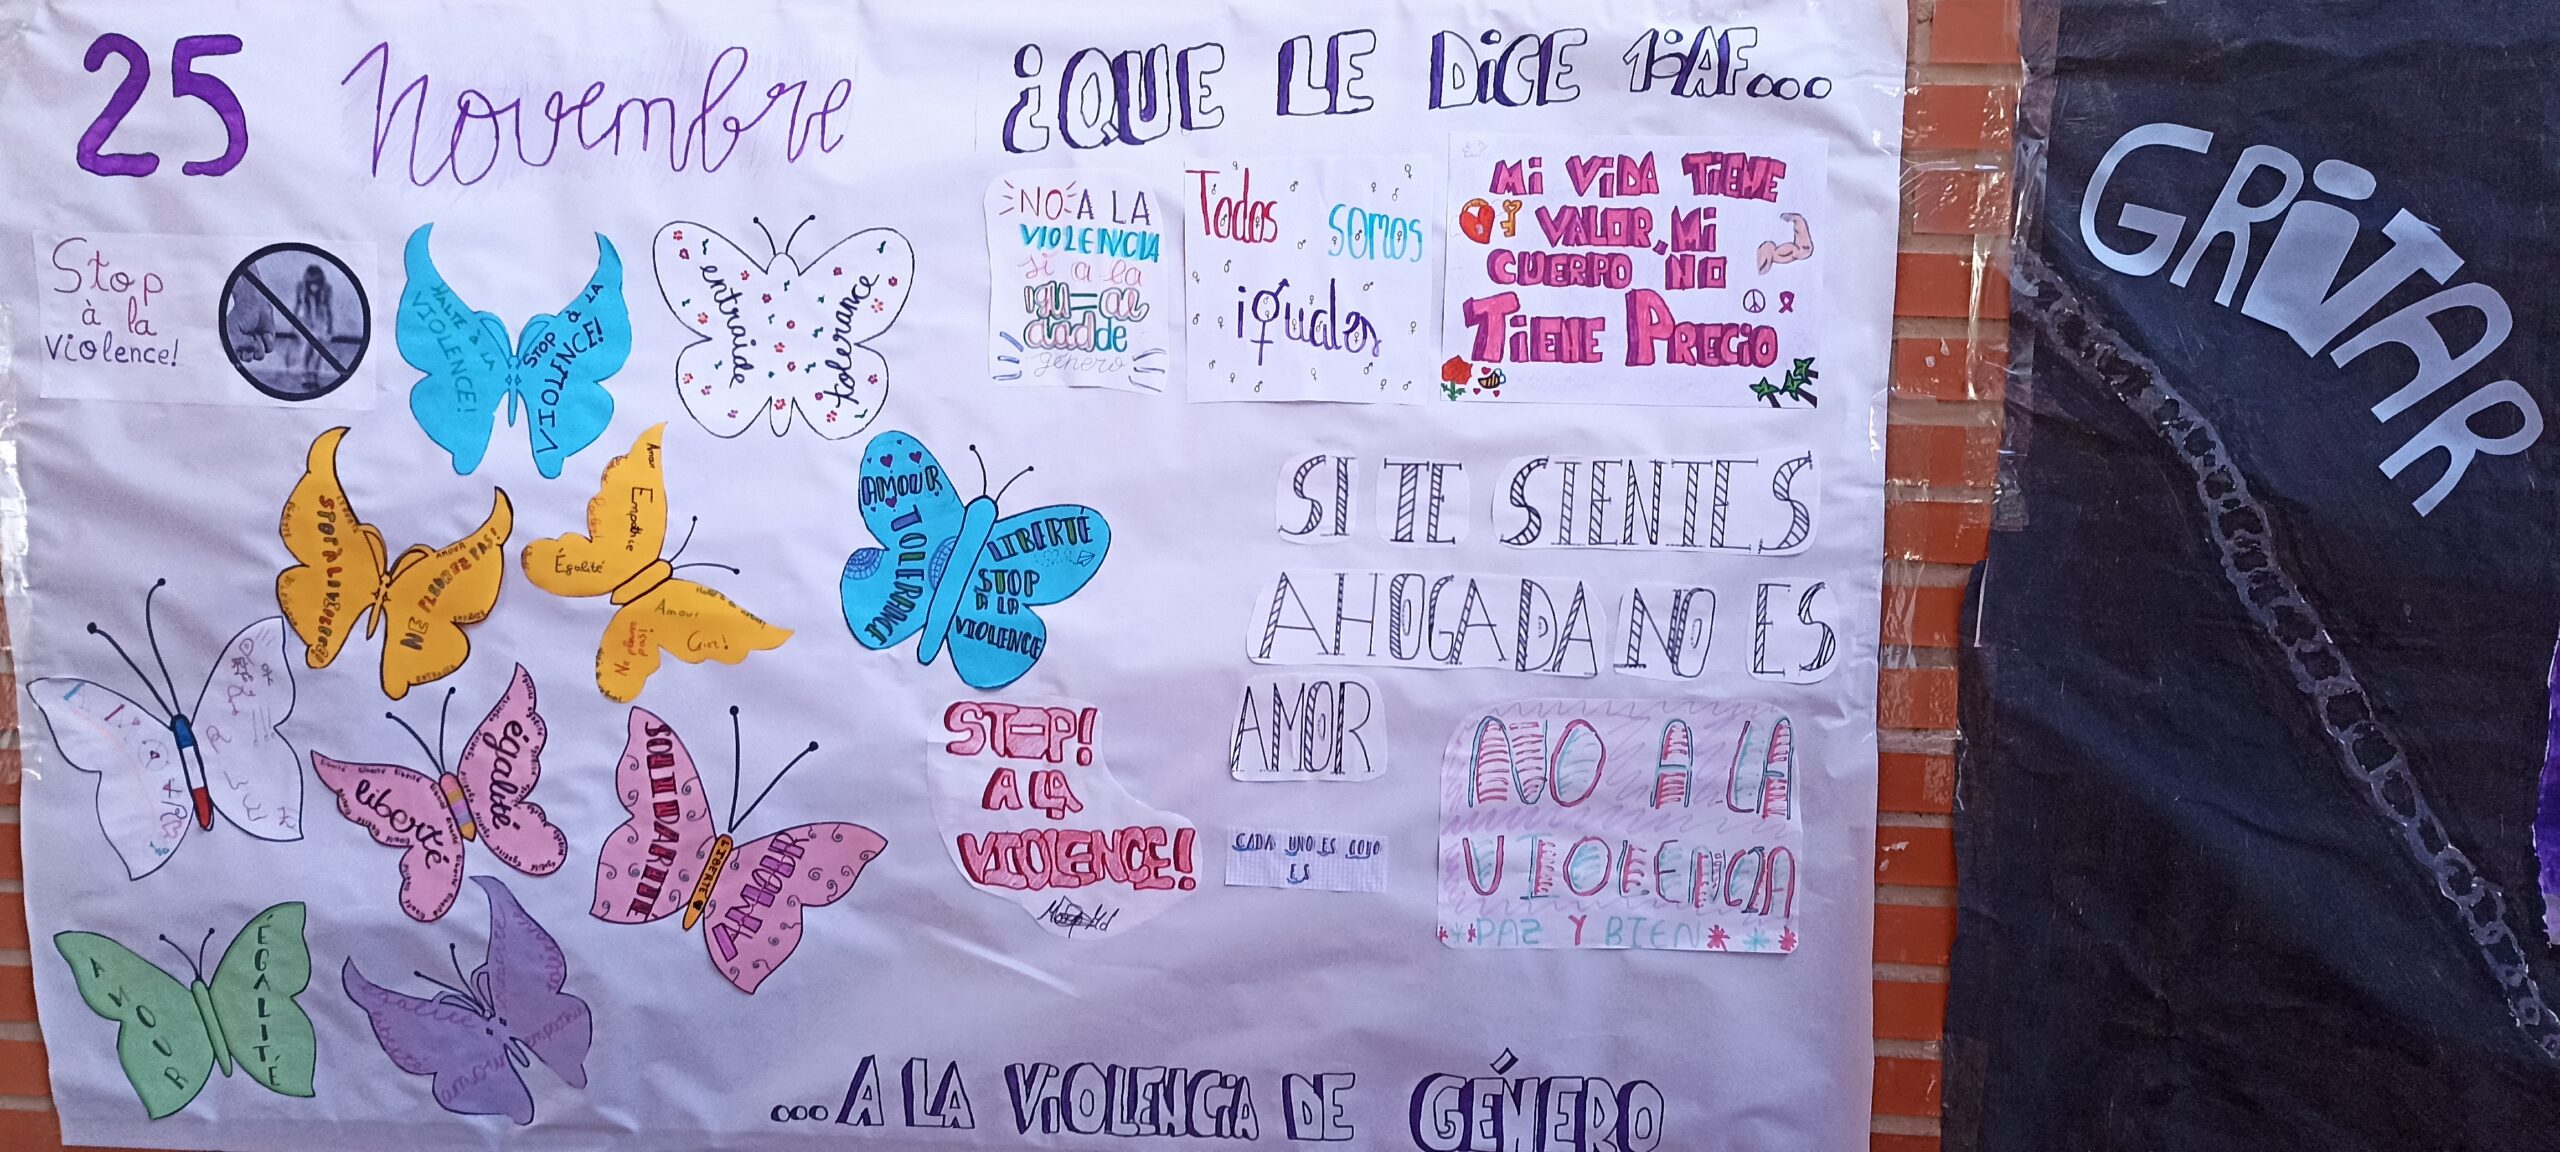 25 novembre
¿QUE LE DICE 1ºAF...
Stop
à la
violence!
HALTE À LA
VIOLENCE!
STOP À LA
VIOLENCE!
entraide
tolerance
NO A LA
VIOLENCIA
si a la
igu=al
dadde
género
Todos somos
iguales
Mi ViDA TiENE
VALOR, Mi
CUERPO NO
TiENE PRECiO
GRiTAR
STOP À LA VIOLENCE
AMOUR
N'EN PLEUREZ PAS!
ENTRAIDE
Amour
Empathie
Égalité
Amour
Ne pleurez
pas!
AMOUR
TOLERANCE
LIBERTÉ
STOP
A LA
VIOLENCE
SI TE SIENTES
AHOGADA NO ES
AMOR
liberté
égalité
SOLIDARITÉ
LIBERTÉ
AMOUR
STOP!
A LA
VIOLENCE!
CADA UNO ES COMO
ES
NO A LA
VIOLENCIA
PAZ Y BIEN
AMOUR
ÉGALITÉ
amour
empathie
...A LA ViOLENCiA DE GÉNERO